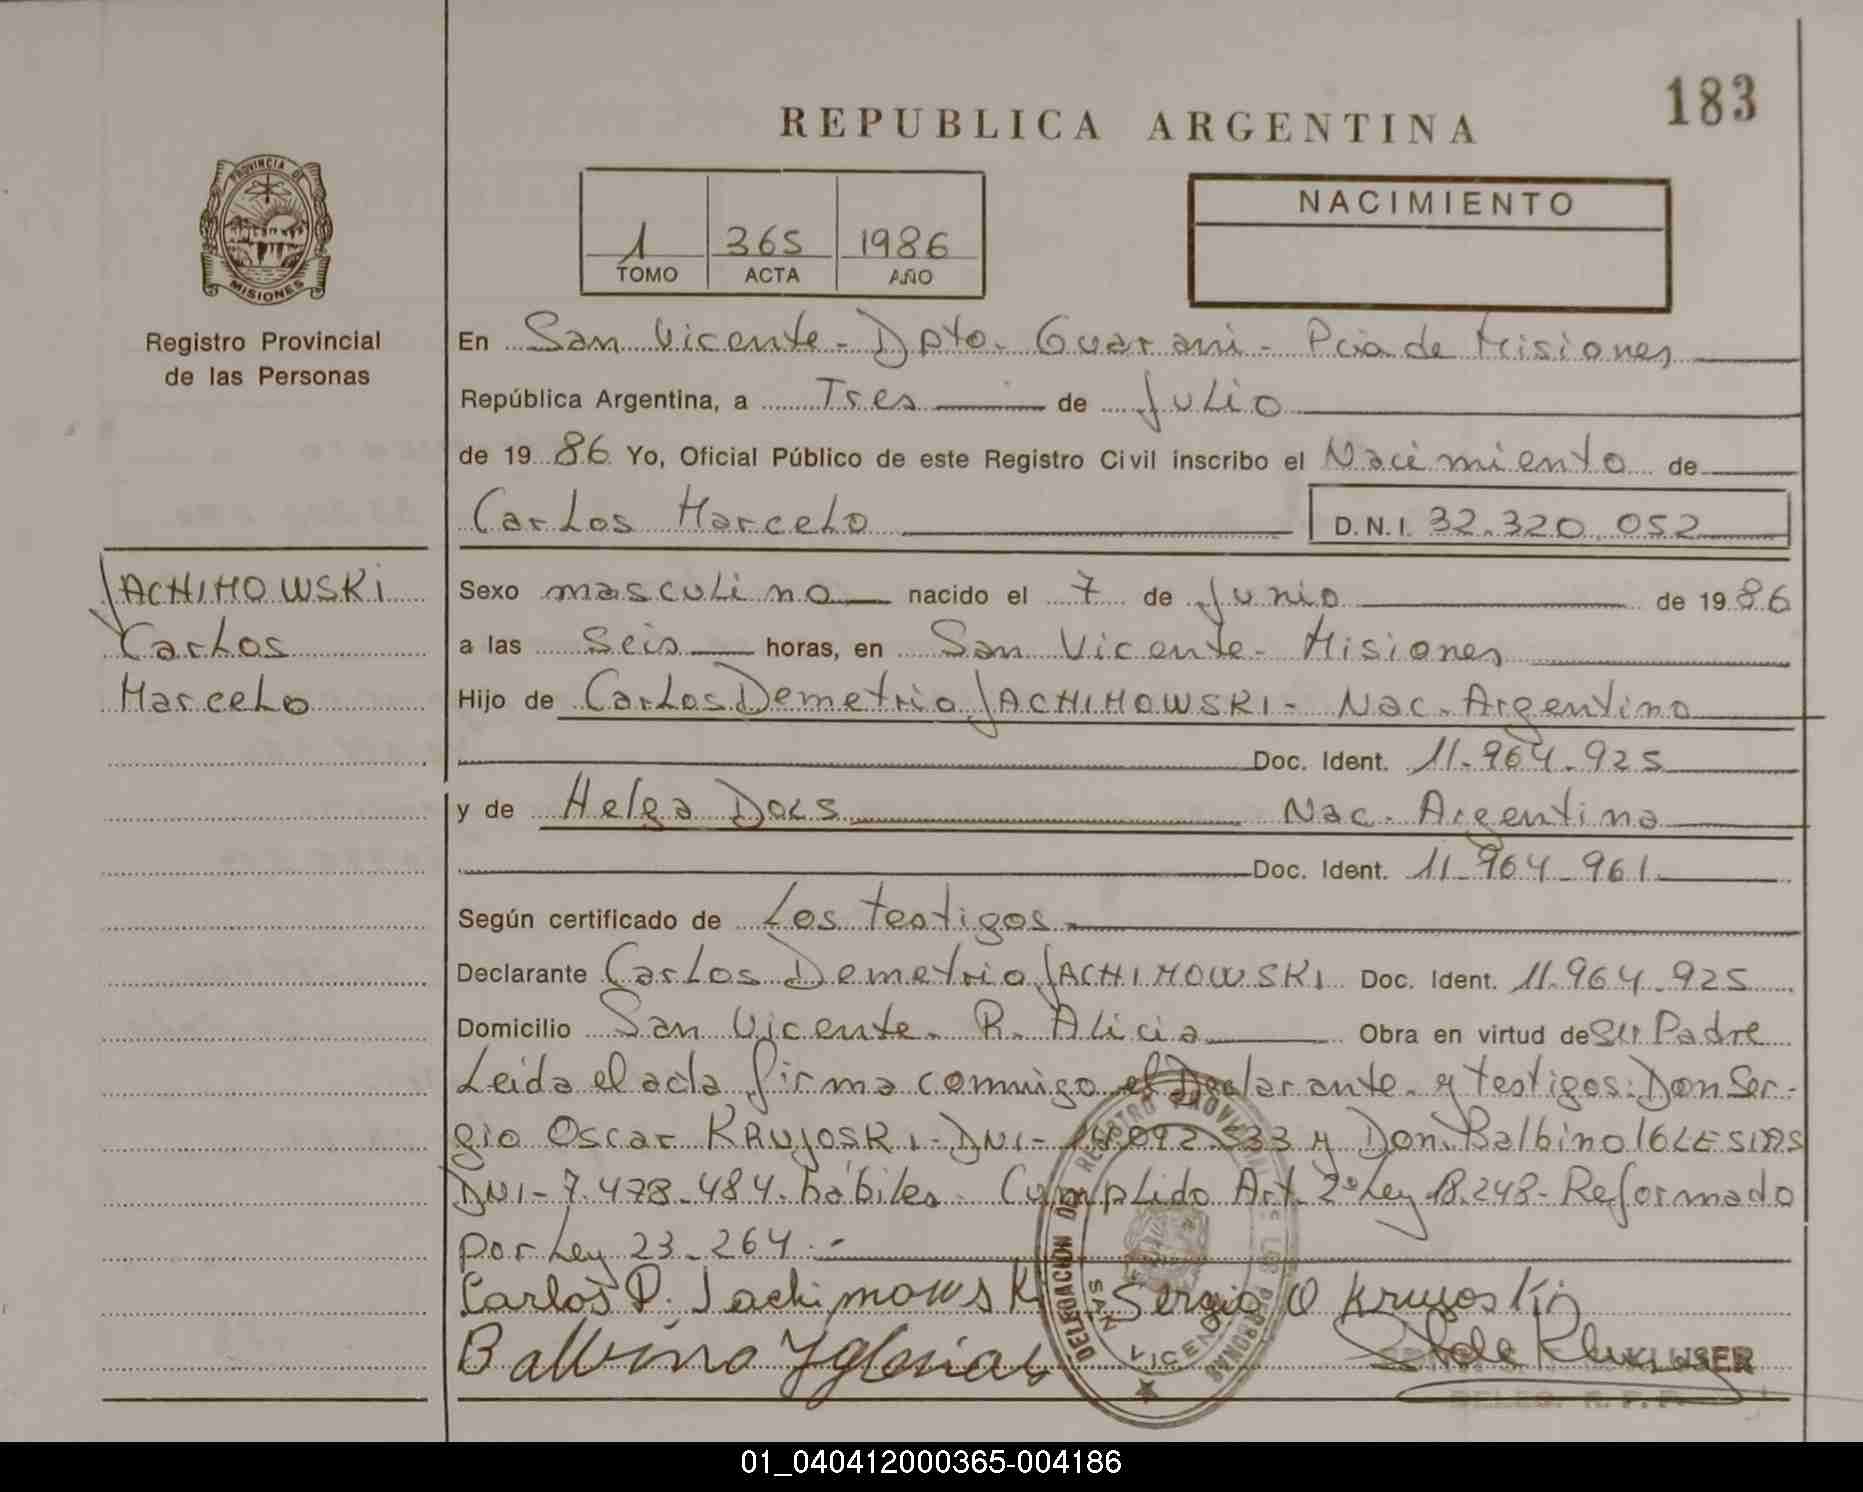 183
REPUBLICA ARGENTINA
PROVINCIA DE
MISIONES
Registro Provincial
de las Personas
1 365 1986
TOMO ACTA AÑO
NACIMIENTO
En San Vicente - Dpto. Guaraní - Pcia de Misiones
República Argentina, a Tres de Julio
de 19 86 Yo, Oficial Público de este Registro Civil inscribo el Nacimiento de
Carlos Marcelo D.N.I. 32.320.052
JACHIMOWSKI
Carlos
Marcelo
Sexo masculino nacido el 7 de Junio de 19 86
a las seis horas, en San Vicente - Misiones
Hijo de Carlos Demetrio JACHIMOWSKI - Nac. Argentino
Doc. Ident. 11.964.925
y de Helga DOLS Nac. Argentina
Doc. Ident. 11.964.961
Según certificado de Los testigos
Declarante Carlos Demetrio JACHIMOWSKI Doc. Ident. 11.964.925
Domicilio San Vicente. R. Alicia Obra en virtud de su Padre
Leida el acta firma conmigo el Declarante y testigos: Don Ser-
gio Oscar KRUJOSKI - DNI - 092.533 y Don Balbino IGLESIAS
DNI - 7.478.484. hábiles. Cumplido Art. 2º Ley 18.248 - Reformado
por Ley 23.264.-
Carlos D. Jachimowski Sergio O Krujoski
Balbino Yglesias
KLUSER
DELEG. R. P. P.
DELEGACION DEL REGISTRO PROVINCIAL DE LAS PERSONAS
SAN VICENTE
01_040412000365-004186